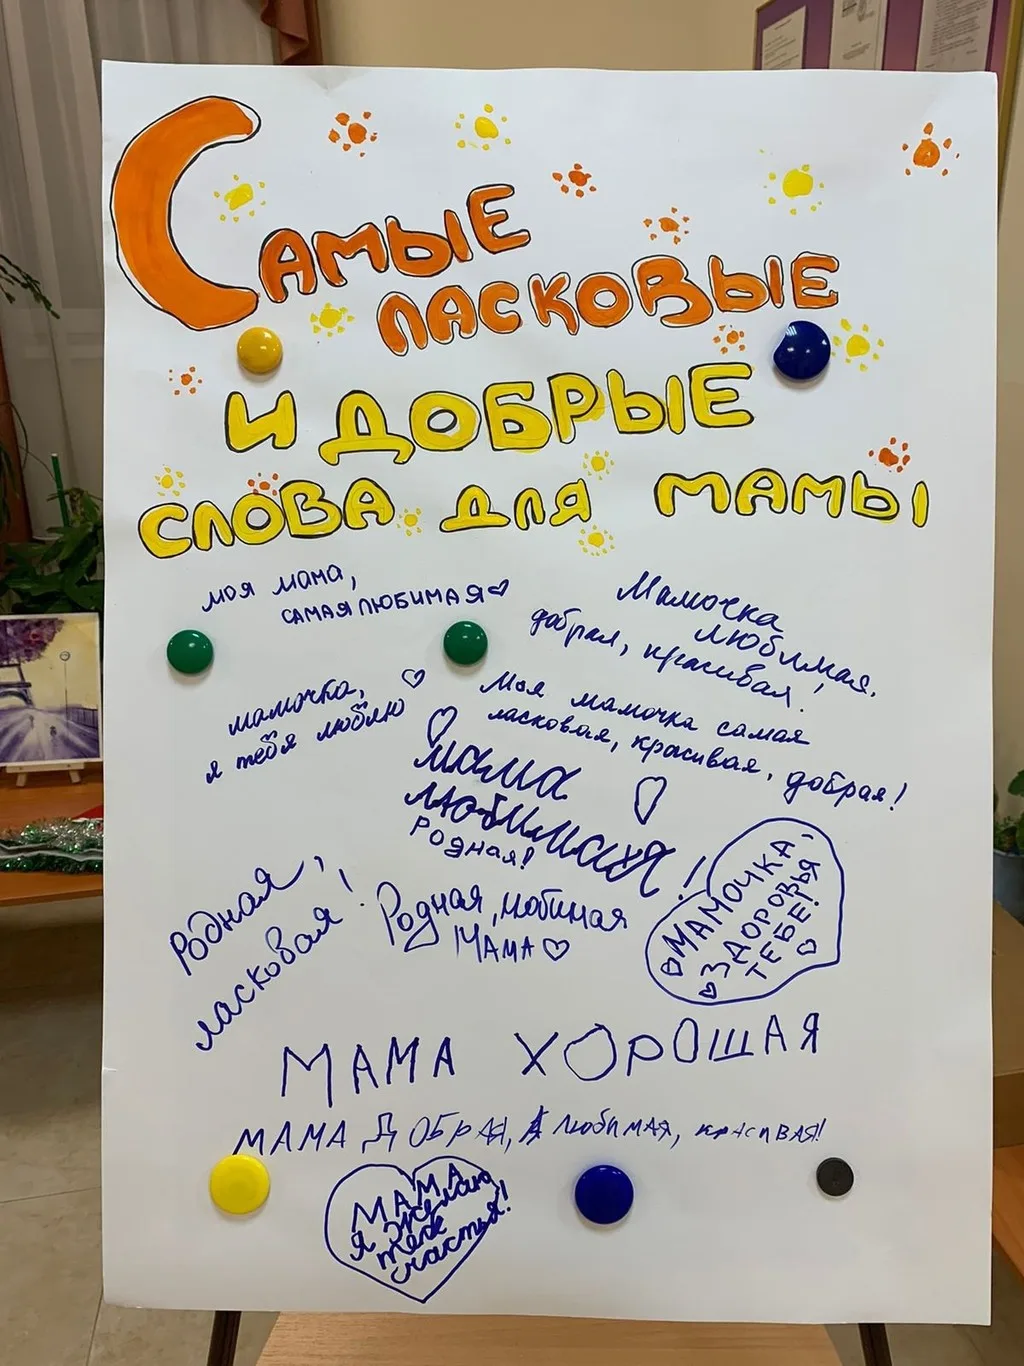 Самые
ласковые
и добрые
слова для мамы
моя мама,
самая любимая♡
Мамочка
любимая,
добрая, красивая!
мамочка,
я тебя люблю ♡
Моя мамочка самая
ласковая, красивая, добрая!
мама
любимая!
Родная!
Родная,
ласковая!
Родная, любимая
Мама♡
МАМОЧКА,
ЗДОРОВЬЯ
ТЕБЕ!
МАМА ХОРОШАЯ
МАМА ДОБРАЯ, ЛЮБИМАЯ, КРАСИВАЯ!
МАМА
я желаю
тебе
счастья!